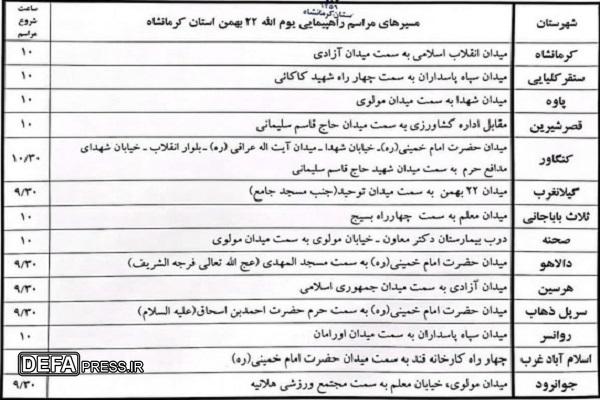 استان کرمانشاه
۱۳۵۹
شهرستان	مسیرهای مراسم راهپیمایی یوم الله ۲۲ بهمن استان کرمانشاه	ساعت شروع مراسم
کرمانشاه	میدان انقلاب اسلامی به سمت میدان آزادی	۱۰
سنقر کلیایی	میدان سپاه پاسداران به سمت چهار راه شهید کاکائی	۱۰
پاوه	میدان شهدا به سمت میدان مولوی	۱۰
قصر شیرین	مقابل اداره گشاورزی به سمت میدان حاج قاسم سلیمانی	۱۰
کنگاور	میدان حضرت امام خمینی(ره)ـ خیابان شهدا ـ میدان آیت اله عراقی (ره) ـ بلوار انقلاب ـ خیابان شهدای
مدافع حرم به سمت میدان شهید حاج قاسم سلیمانی	۱۰/۳۰
گیلانغرب	میدان ۲۲ بهمن به سمت میدان توحید(جنب مسجد جامع)	۹/۳۰
ثلاث باباجانی	میدان معلم به سمت چهارراه بسیج	۱۰
صحنه	درب بیمارستان دکتر معاون ـ خیابان مولوی به سمت میدان مولوی	۱۰
دالاهو	میدان حضرت امام خمینی(ره) به سمت مسجد المهدی (عج الله تعالی فرجه الشریف)	۹/۳۰
هرسین	میدان آزادی به سمت میدان جمهوری اسلامی	۹/۳۰
سرپل ذهاب	میدان حضرت امام خمینی(ره) به سمت حرم حضرت احمدبن اسحاق(علیه السلام)	۹/۳۰
روانسر	میدان سپاه پاسداران به سمت میدان اورامان	۱۰
اسلام آباد غرب	چهار راه کارخانه قند به سمت میدان حضرت امام خمینی(ره)
جوانرود	میدان مولوی، خیابان معلم به سمت مجتمع ورزشی هلانیه	۹/۳۰
DEFAPRESS.IR